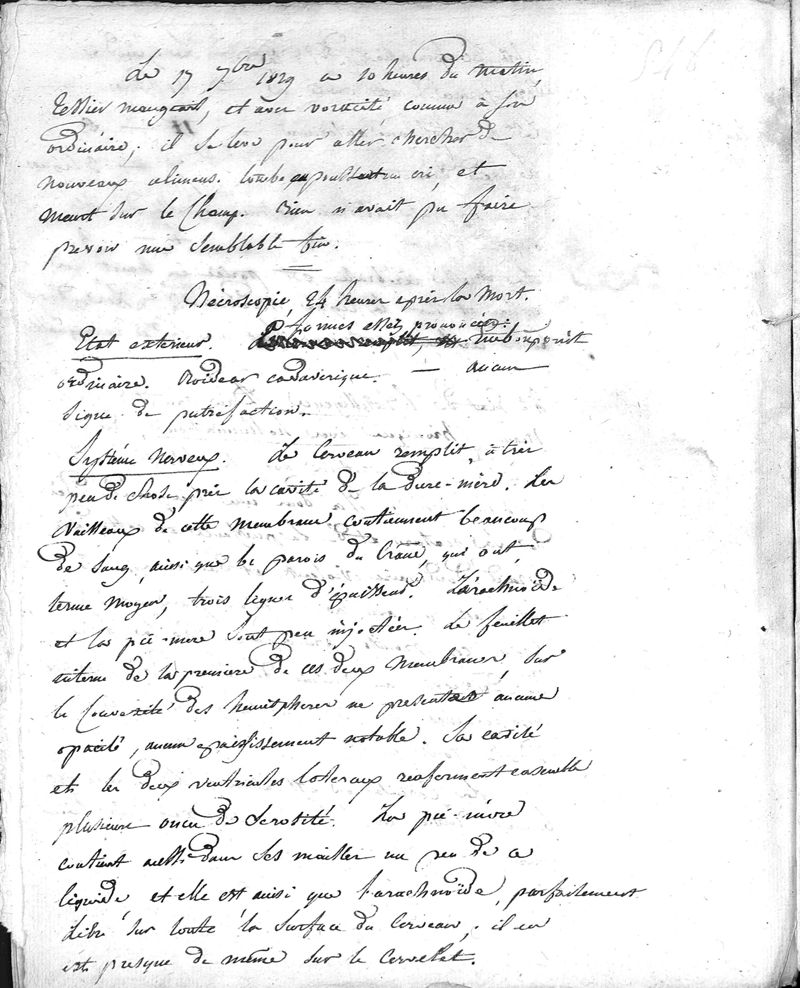 Le 17 7bre 1829 a 10 heures du matin,
Tessier mangeait, et avec voracité comme à son
ordinaire; il se leve pour aller chercher de
nouveaux alimens. tombe en poussant un cri, et
meurt sur le champ. Rien n'avait pu faire
prevoir une semblable fin.
Nécroscopie 24 heures après la mort.
formes assez prononcées:
Etat exterieur. embonpoint
ordinaire. Roideur cadaverique. — aucun
signe de putréfaction.
Système Nerveux. Le Cerveau remplit, à très
peu de chose près la cavité de la dure-mère. Les
Vaisseaux de cette membrane contiennent beaucoup
de sang, ainsi que les parois du Crâne, qui ont,
terme moyen, trois lignes d'épaisseur. L'arachnoïde
et la pie-mere sont peu injectées. Le feuillet
interne de la premiere de ces deux membranes, sur
la Convexité des hemispheres ne presente aucune
opacité, aucun épaississement notable. Sa cavité
et les deux ventricules lateraux renferment ensemble
plusieurs onces de serosité. La pie-mère
contient aussi dans ses mailles un peu de ce
liquide et elle est ainsi que l'arachnoïde, parfaitement
Libre sur toute la surface du Cerveau; il en
est presque de même sur le Cervelet.